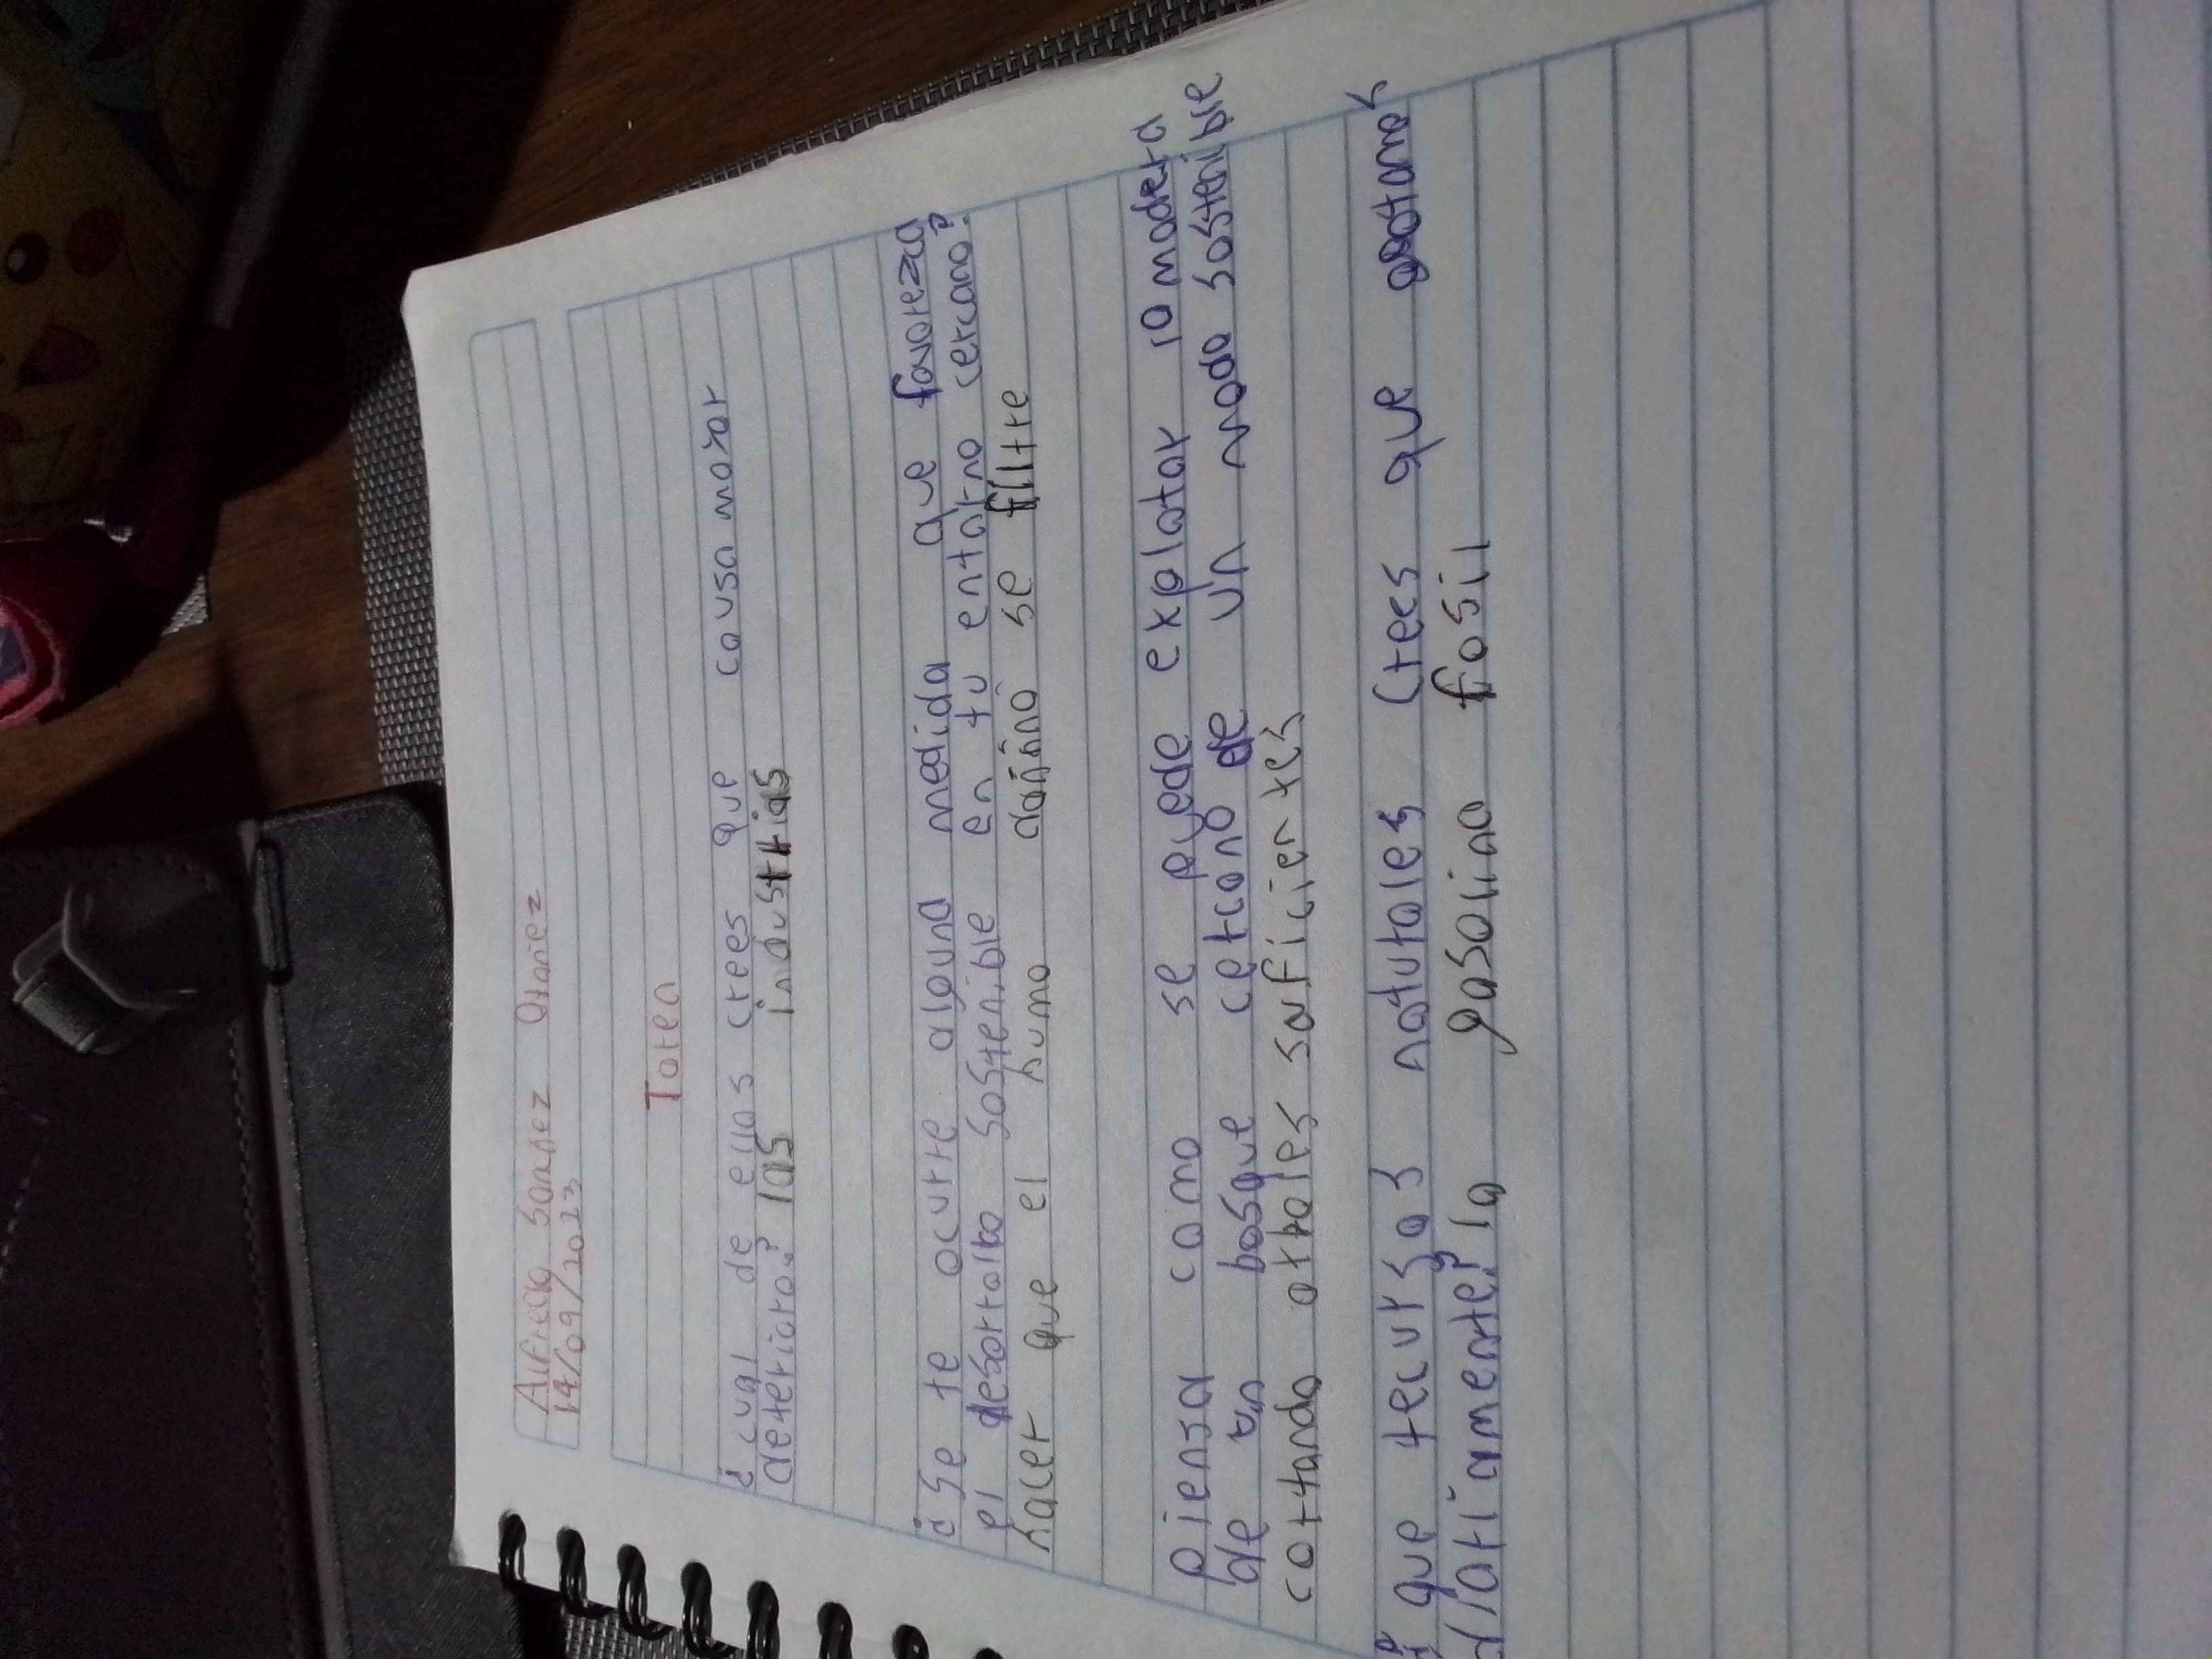 Alfredo Sanchez Otañez
14/09/2023
Tarea
¿cual de ellos crees que causa mayor
deterioro? las industrias
¿se te ocurre alguna medida que favorezca
el desarrollo sostenible en tu entorno cercano?
hacer que el humo dañino se filtre
piensa como se puede explotar la madera
de un bosque cercano de un modo sostenible
cortando arboles suficientes
¿que recursos naturales crees que gastamos
diariamente? la gasolina fosil